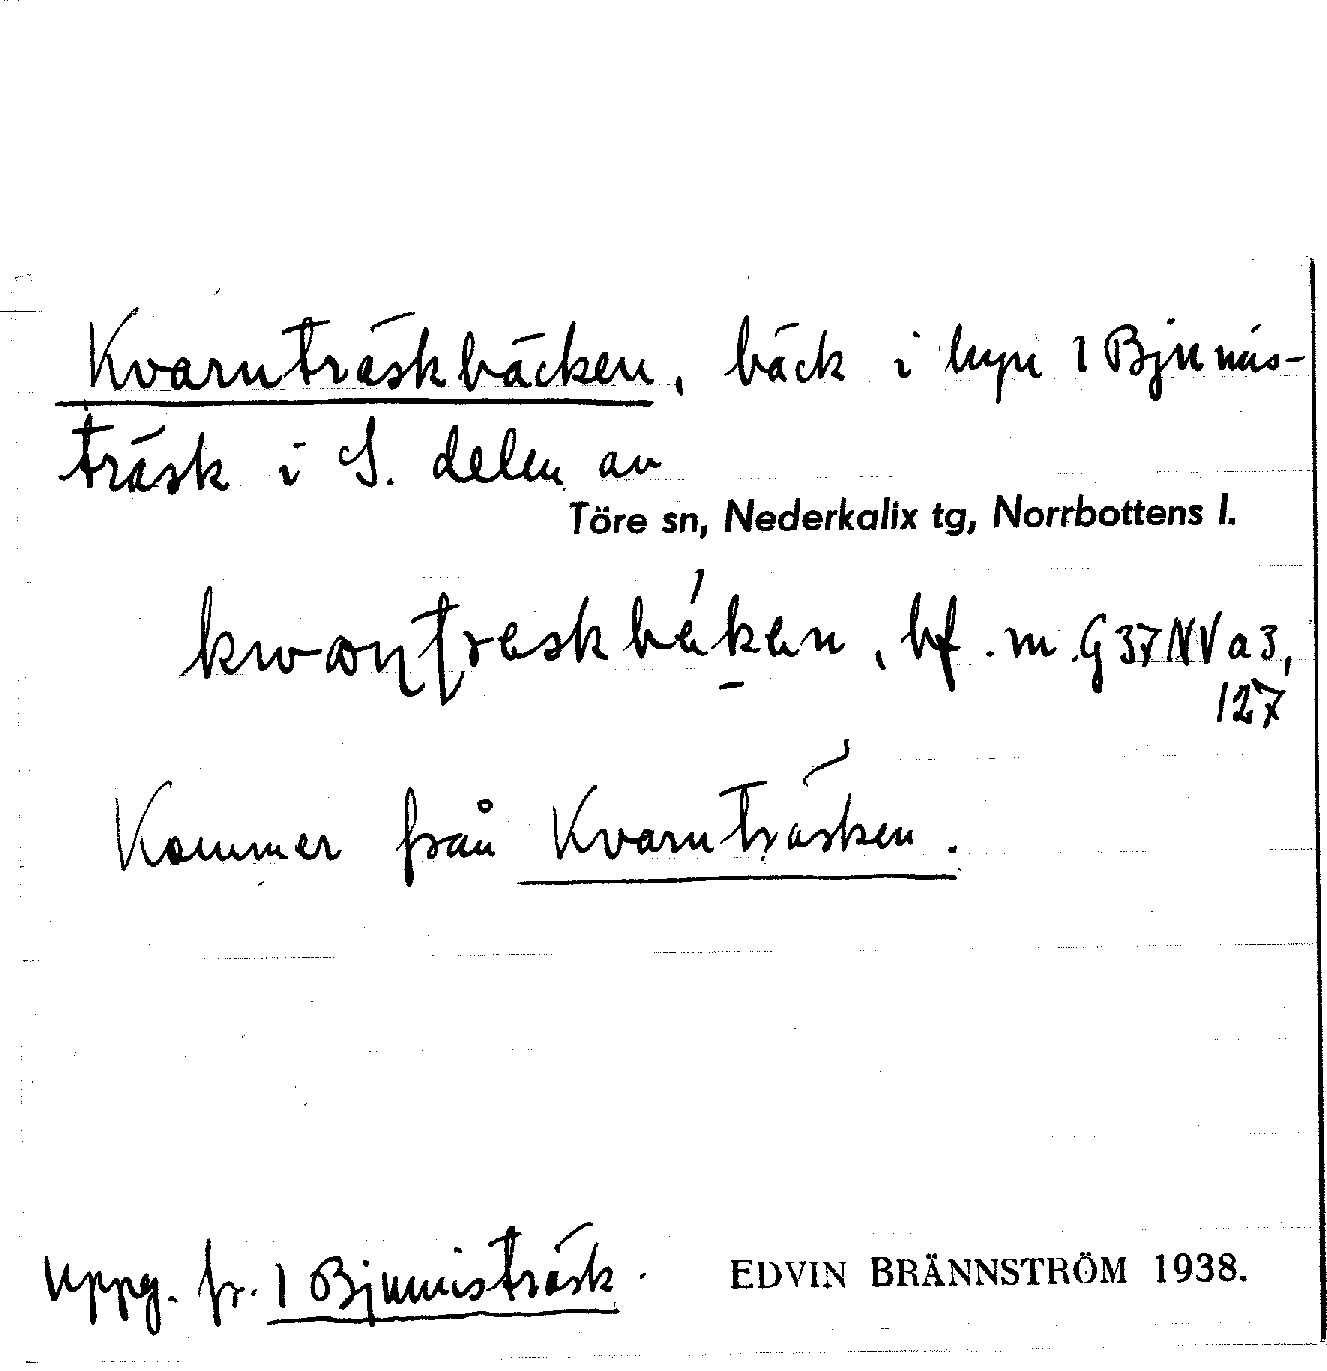 Kvarnträskbäcken, bäck i byn 1 Bjumis-
träsk i S. delen av
Töre sn, Nederkalix tg, Norrbottens l.
bf. m. G 37 NV a 3,
127
Kommer från Kvarnträsken.
Uppg. fr. 1 Bjumisträsk. EDVIN BRÄNNSTRÖM 1938.